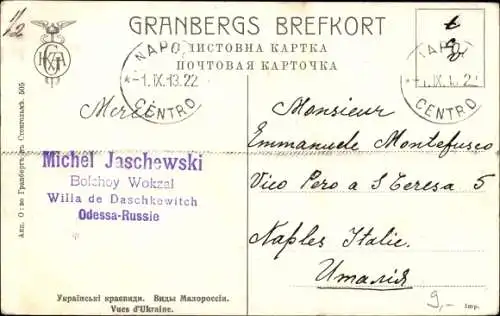 11/12
GRANBERGS BREFKORT
ЛИСТОВНА КАРТКА
ПОЧТОВАЯ КАРТОЧКА
NAPOLI
*-1.IX.13.22
CENTRO
NAPOLI
CENTRO
Merci
Monsieur
Emmanuele Montefusco
Vico Pero a S Teresa 5
Naples Italie.
Италія
Michel Jaschewski
Bolchoy Wokzal
Willa de Daschkewitch
Odessa-Russie
Акц. О-во Гранбергъ въ Стокгольмѣ. 905
Українські краєвиди. Виды Малороссіи.
Vues d'Ukraine.
9,-
Imp.